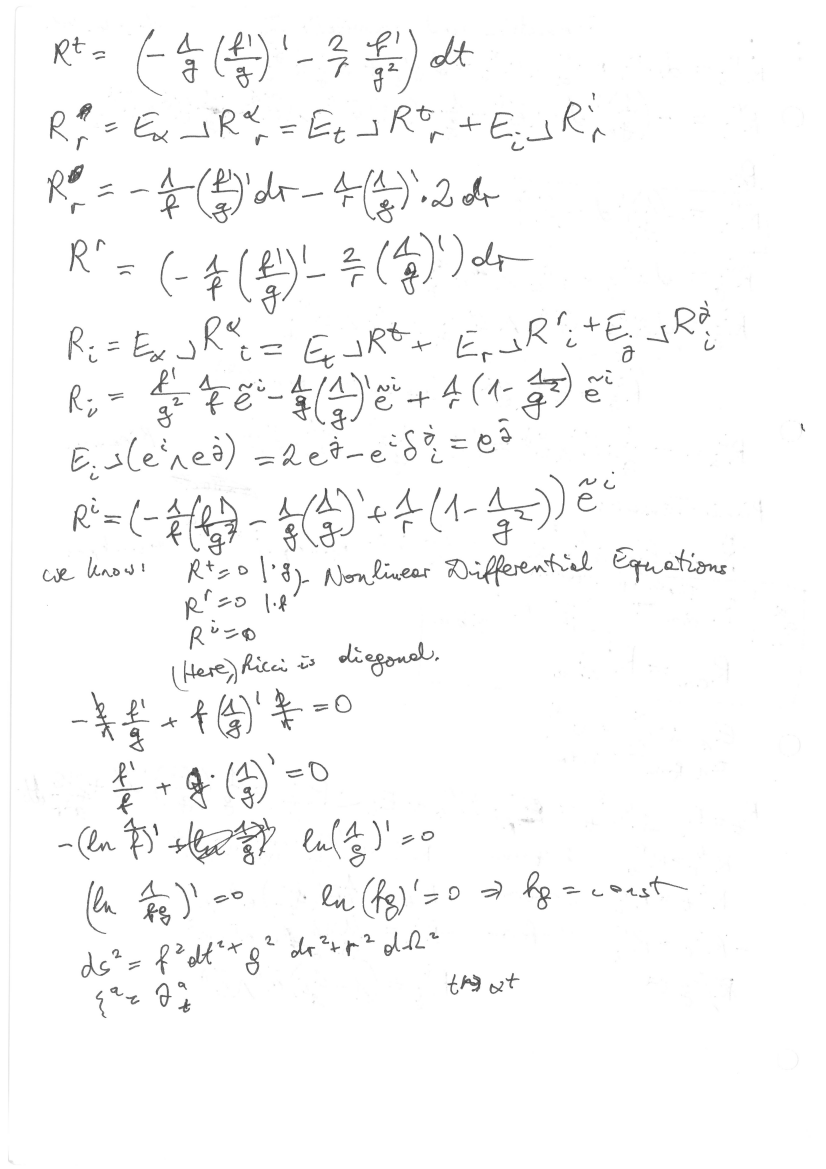 R^t = (- 1/g (f'/g)' - 2/r f'/g²) dt
R_r = E_α ⌟ R^α_r = E_t ⌟ R^t_r + E_i ⌟ R^i_r
R_r = - 1/f (f'/g)' dr - 1/r (1/g)' · 2 dr
R^r = (- 1/f (f'/g)' - 2/r (1/g)') dr
R_i = E_α ⌟ R^α_i = E_t ⌟ R^t + E_r ⌟ R^r_i + E_j ⌟ R^j_i
R_i = f'/g² 1/f ẽ^i - 1/g (1/g)' ẽ^i + 1/r (1 - 1/g²) ẽ^i
E_i ⌟ (e^i ∧ e^j) = 2e^j - e^i δ^j_i = e^j
R^i = (- 1/f (f'/g²) - 1/g (1/g)' + 1/r (1 - 1/g²)) ẽ^i
we know: R^t = 0 |·g) - Nonlinear Differential Equations
R^r = 0 |·f
R^i = 0
(Here,) Ricci is diagonal.
- 2/r f'/g + f (1/g)' 2/r = 0
f'/f + g · (1/g)' = 0
- (ln 1/f)' ln(1/g)' = 0
(ln 1/fg)' = 0 ln(fg)' = 0 ⇒ fg = const
ds² = f² dt² + g² dr² + r² dΩ²
ξ^a = ∂^a_t t → αt